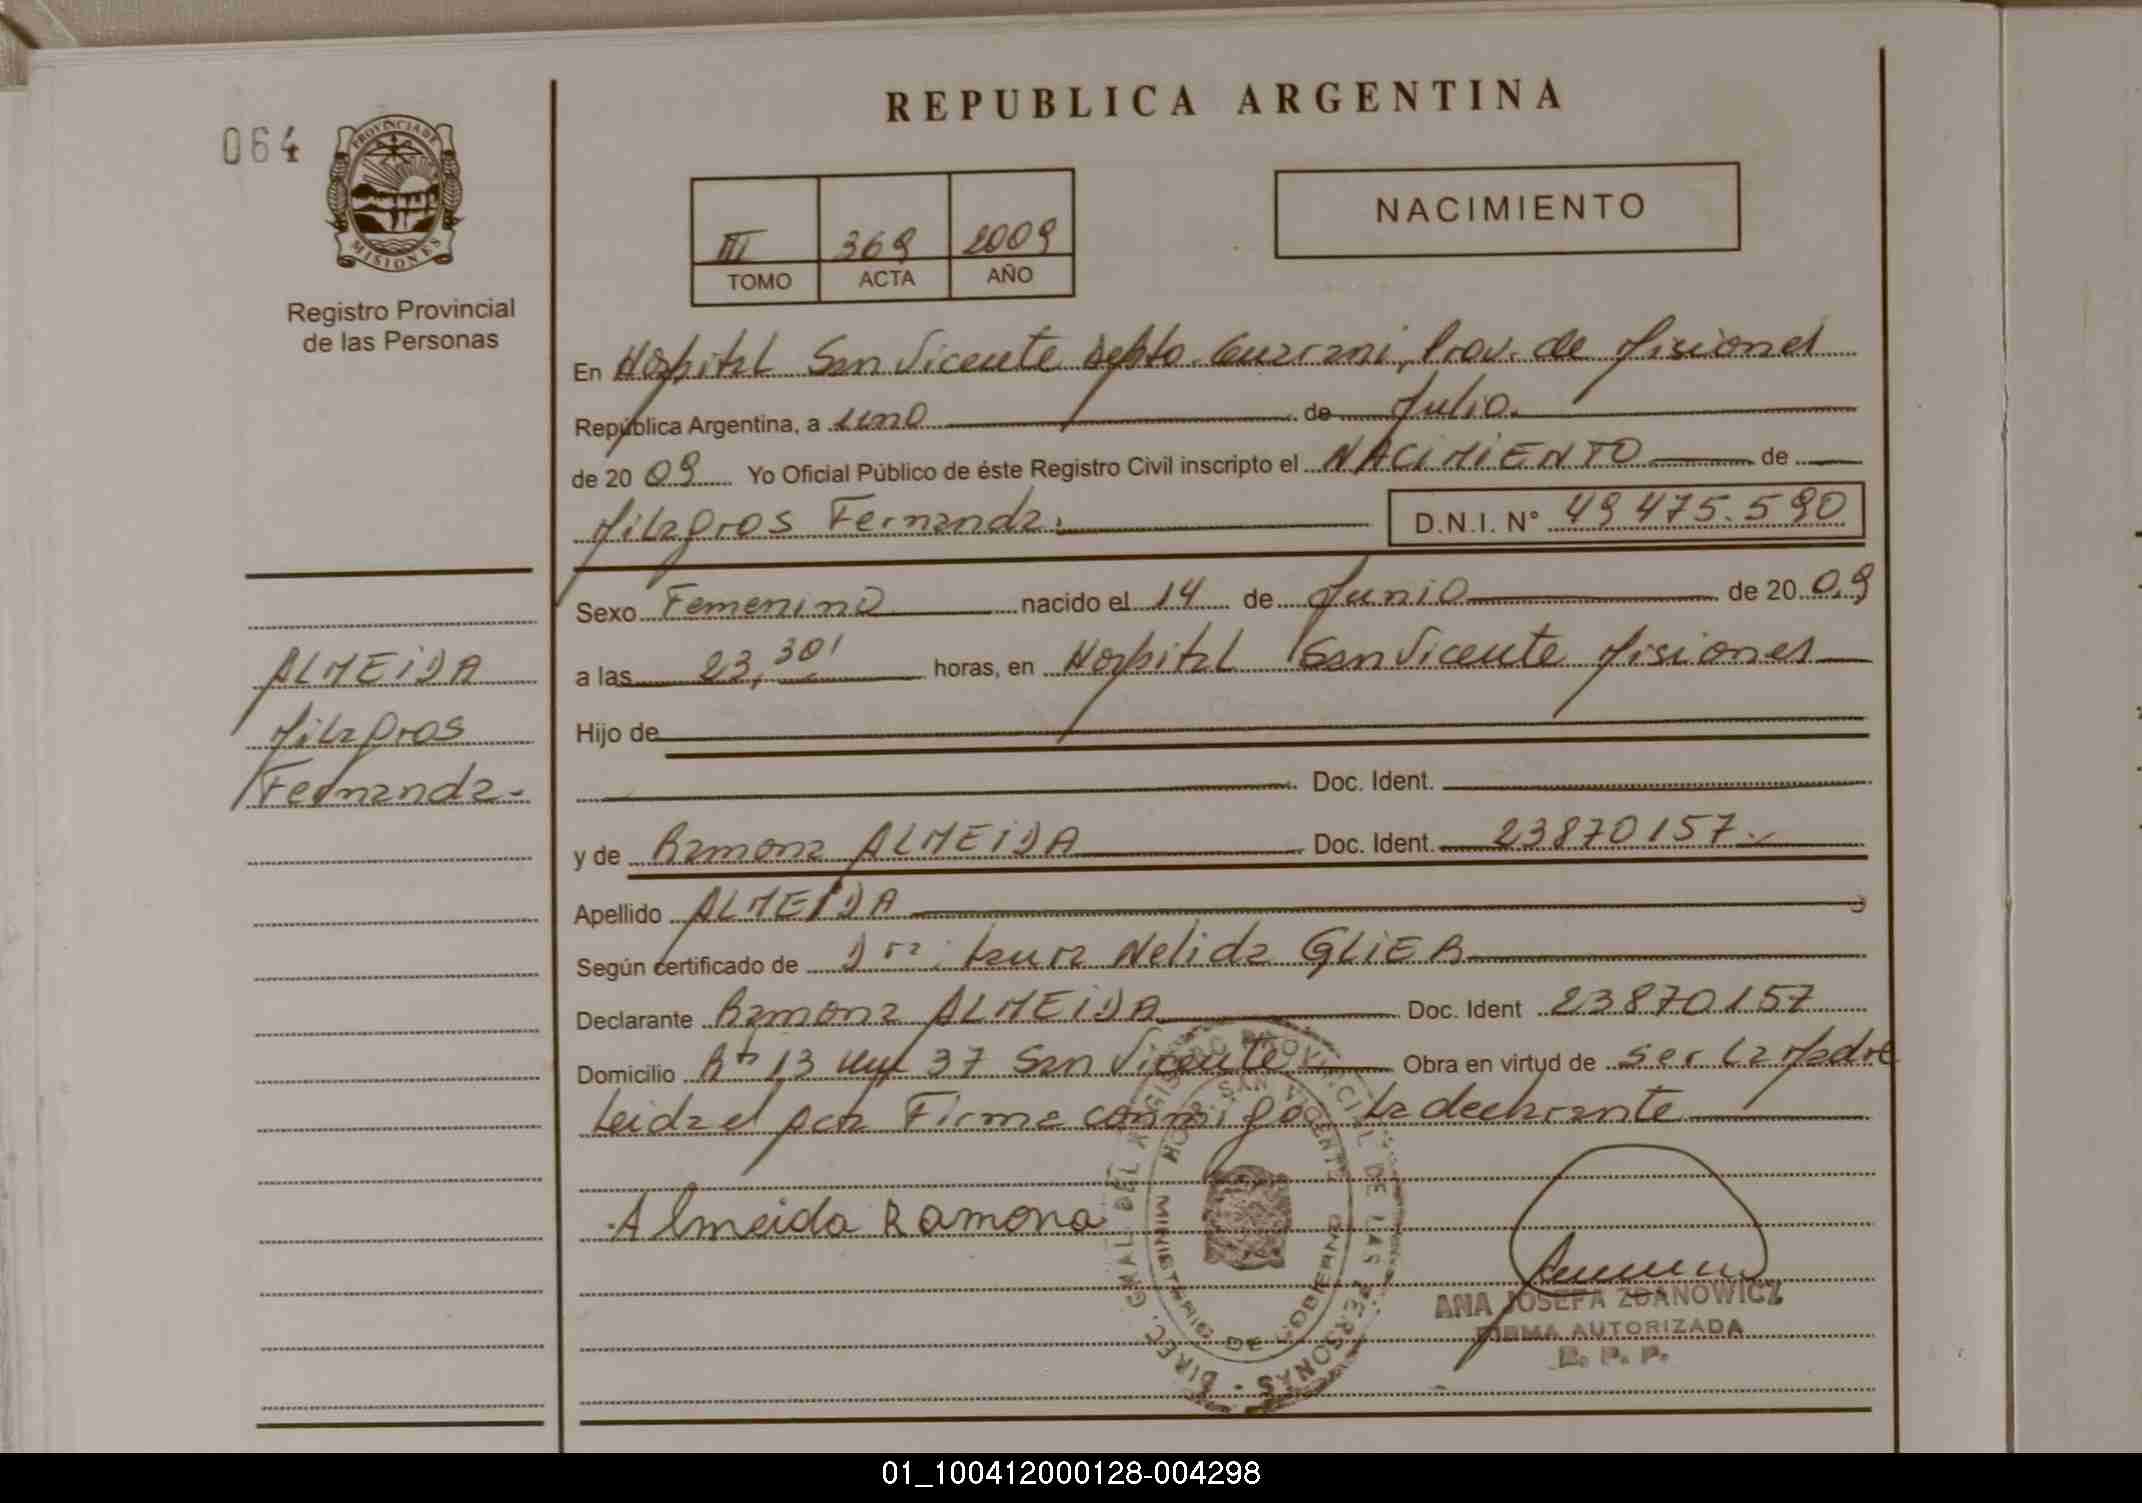 REPUBLICA ARGENTINA
064
PROVINCIA DE
MISIONES
Registro Provincial
de las Personas
NACIMIENTO
III 369 2009
TOMO ACTA AÑO
En Hospital San Vicente Depto. Guarani, Prov. de Misiones
República Argentina, a uno de Julio.
de 20 09 Yo Oficial Público de éste Registro Civil inscripto el NACIMIENTO de
Milagros Fernanda. D.N.I. N° 49475.590
Sexo Femenino nacido el 14 de Junio de 20 09
a las 23,30' horas, en Hospital San Vicente Misiones
Hijo de
Doc. Ident.
y de Ramona ALMEIDA Doc. Ident. 23870157.
Apellido ALMEIDA
Según certificado de Dra. Laura Nelida GLIER
Declarante Ramona ALMEIDA Doc. Ident 23870157
Domicilio Rta 13 km 37 San Vicente Obra en virtud de ser la Madre
Leida el acta Firma conmigo la declarante
Almeida Ramona
ALMEIDA
Milagros
Fernanda.
DIREC. GRAL. DEL REGISTRO PROVINCIAL DE LAS PERSONAS
HOSP. SAN VICENTE
MINISTERIO DE GOBIERNO
ANA JOSEFA ZDANOWICZ
FIRMA AUTORIZADA
R. P. P.
01_100412000128-004298